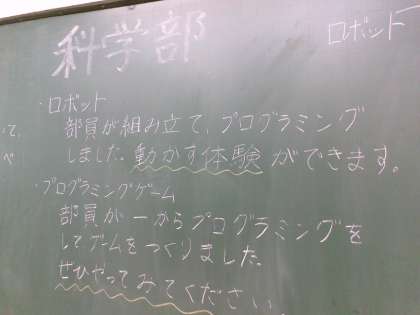 科学部
ロボット
・ロボット
部員が組み立て、プログラミング
しました。動かす体験ができます。
・プログラミングゲーム
部員が一からプログラミングを
してゲームをつくりました。
ぜひやってみてください
いて、
べ